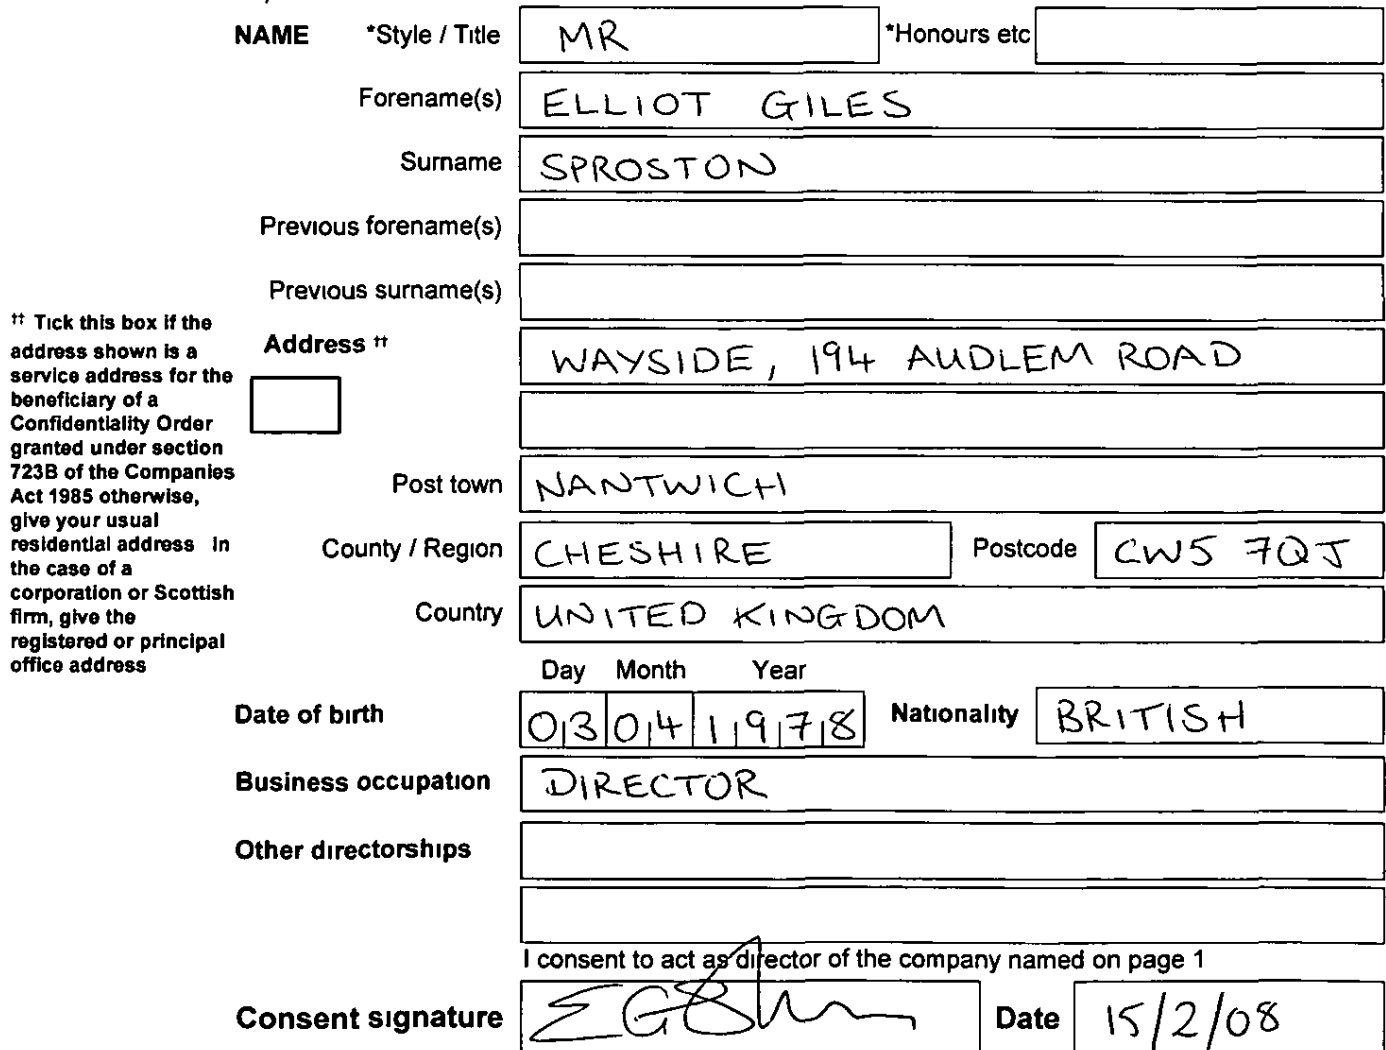 NAME *Style / Title MR *Honours etc
Forename(s) ELLIOT GILES
Surname SPROSTON
Previous forename(s)
Previous surname(s)
†† Tick this box if the
address shown is a
service address for the
beneficiary of a
Confidentiality Order
granted under section
723B of the Companies
Act 1985 otherwise,
give your usual
residential address In
the case of a
corporation or Scottish
firm, give the
registered or principal
office address
Address †† WAYSIDE, 194 AUDLEM ROAD
Post town NANTWICH
County / Region CHESHIRE Postcode CW5 7QJ
Country UNITED KINGDOM
Day Month Year
Date of birth 03 04 1978 Nationality BRITISH
Business occupation DIRECTOR
Other directorships
I consent to act as director of the company named on page 1
Consent signature Date 15/2/08